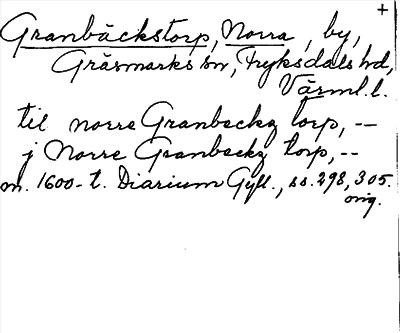 +
Granbäckstorp, Norra, by,
Gräsmarks sn, Fryksdals hd,
Värml. l.
til norre Granbeckz torp, --
j Norre Granbeckz torp, --
m. 1600-t. Diarium Gyll., ss. 298, 305.
orig.